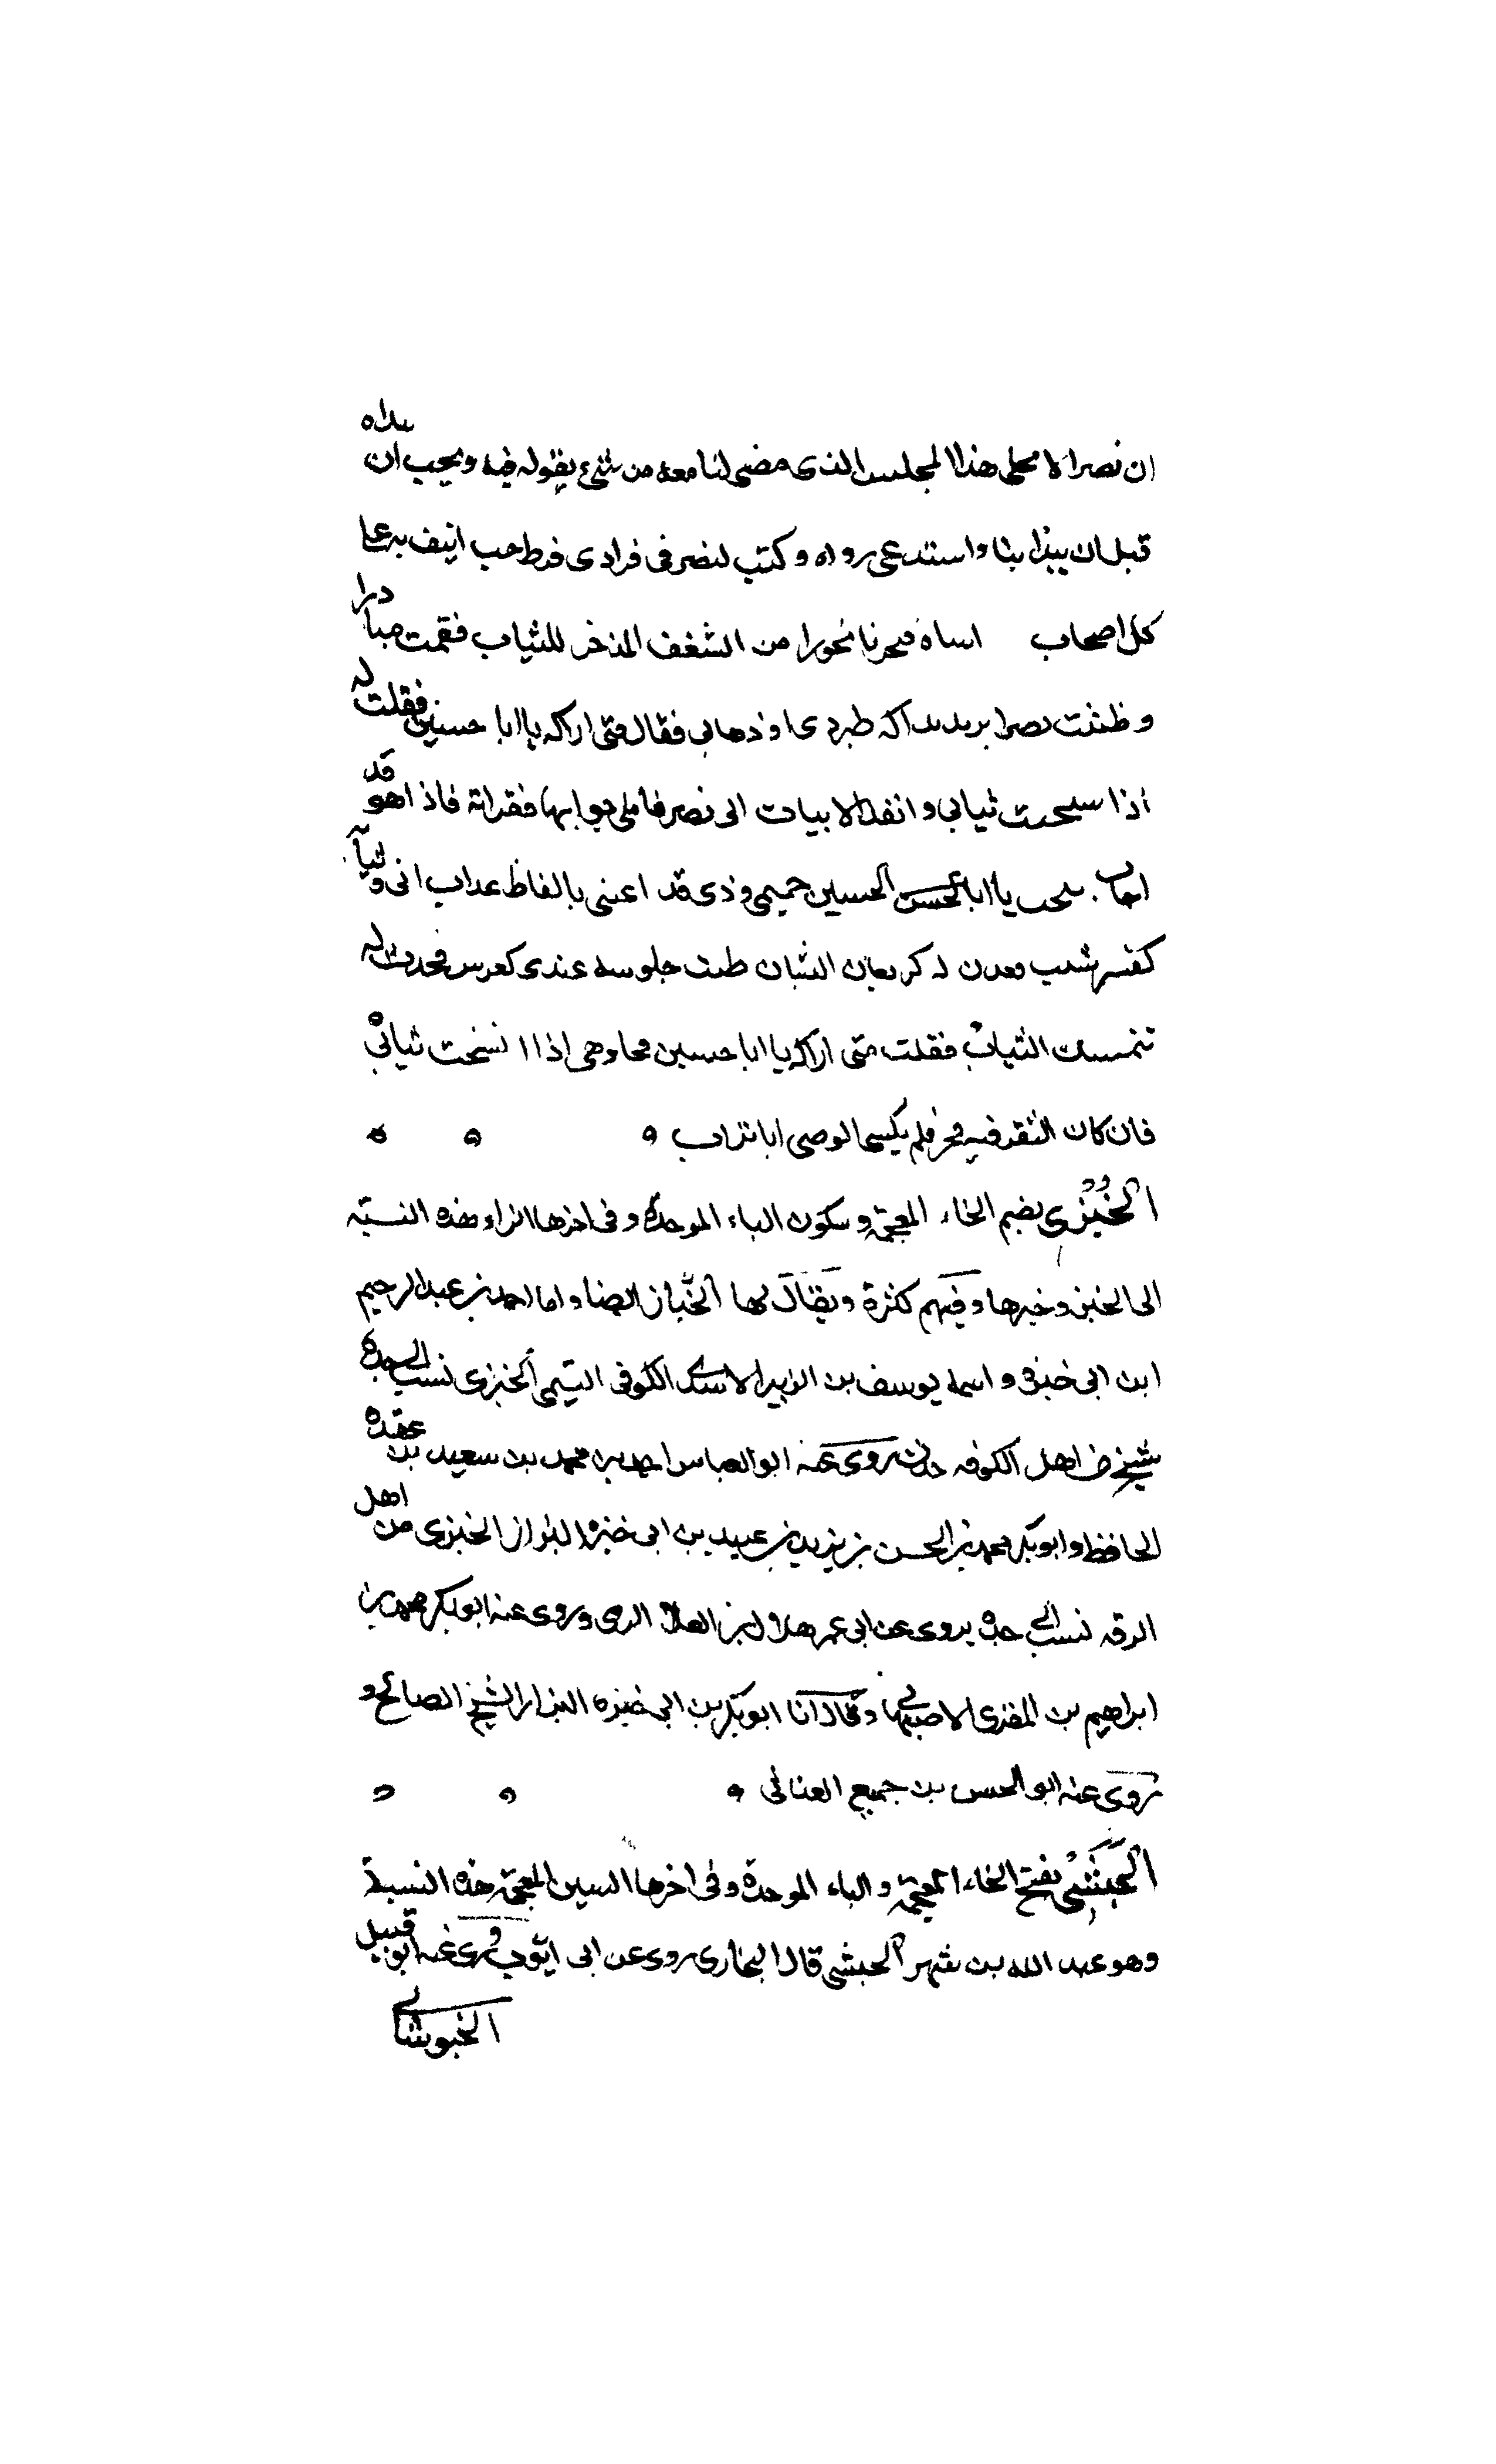 ان نصرا لا يخلى هذا المجلس الذى مضى لنا معه من شئ يقوله فيه ويجب ان نبداه
قبل ان يبدا بنا واستدعى دواه وكتب لنصر فى فوادى فرط حب انيف به على
كل اصحاب اساه فبحرنا بخورا من الشغف المدخر للثياب فقمت مبادرا
وظننت نصرا يريد بداكه طردى او ذهابى فقال متى اراكه يا ابا حسين فقلت له
اذا سبحت ثيابى وانفد الابيات الى نصر فاملى جوابها فقراته فاذا هو قد
اجاب يا ابا الحسين حميمى وذى قد اعبنى بالفاظ عداب اتى وثيا
كفسر شيب فعدن له كريعان الشبان طنت جلوسه عندى كعرس فجدت له
بتمسك الثياب فقلت متى اراكه يا ابا حسين فجاوبنى اذا ا نسخت ثيابى
فان كان التقد فيه فخر فلم يكسى الوصى ابا تراب
الخُبْزى بضم الخاء المعجمة وسكون الباء الموحدة وفى اخرها الزاء هذه النسبة
الى الخبز وخبزها وفيهم كثرة ويقال لها الخباز ايضا واما احمد بن عبد الرحيم
ابن ابى خبزه واسمه يوسف بن الزبير الاسدى الكوفى التيمى الخبزى نسب الى جده
شيخ من اهل الكوفه حدث روى عنه ابو العباس احمد بن محمد بن سعيد بن عقده
الحافظ وابو بكر محمد بن الحسن بن يزيد بن عبيد بن ابى خبزه البزاز الخبزى من اهل
الرقه نسب الى جده يروى عن ابى عمر هلال بن العلا الرقى وروى عنه ابو بكر محمد بن
ابراهيم بن المقرى الاصبهانى وقال انا ابو بكر بن ابى خبزه البزار الشيخ الصالح و
روى عنه ابو الحسن بن جميع الغسانى
الخَبَشى بفتح الخاء المعجمة والباء الموحدة وفى اخرها السين المعجمة هذه النسبة
وهو عبد الله بن شهر الخبشى قال البخارى روى عن ابى ايوب روى عنه ابو قبيل
الخبوشانى